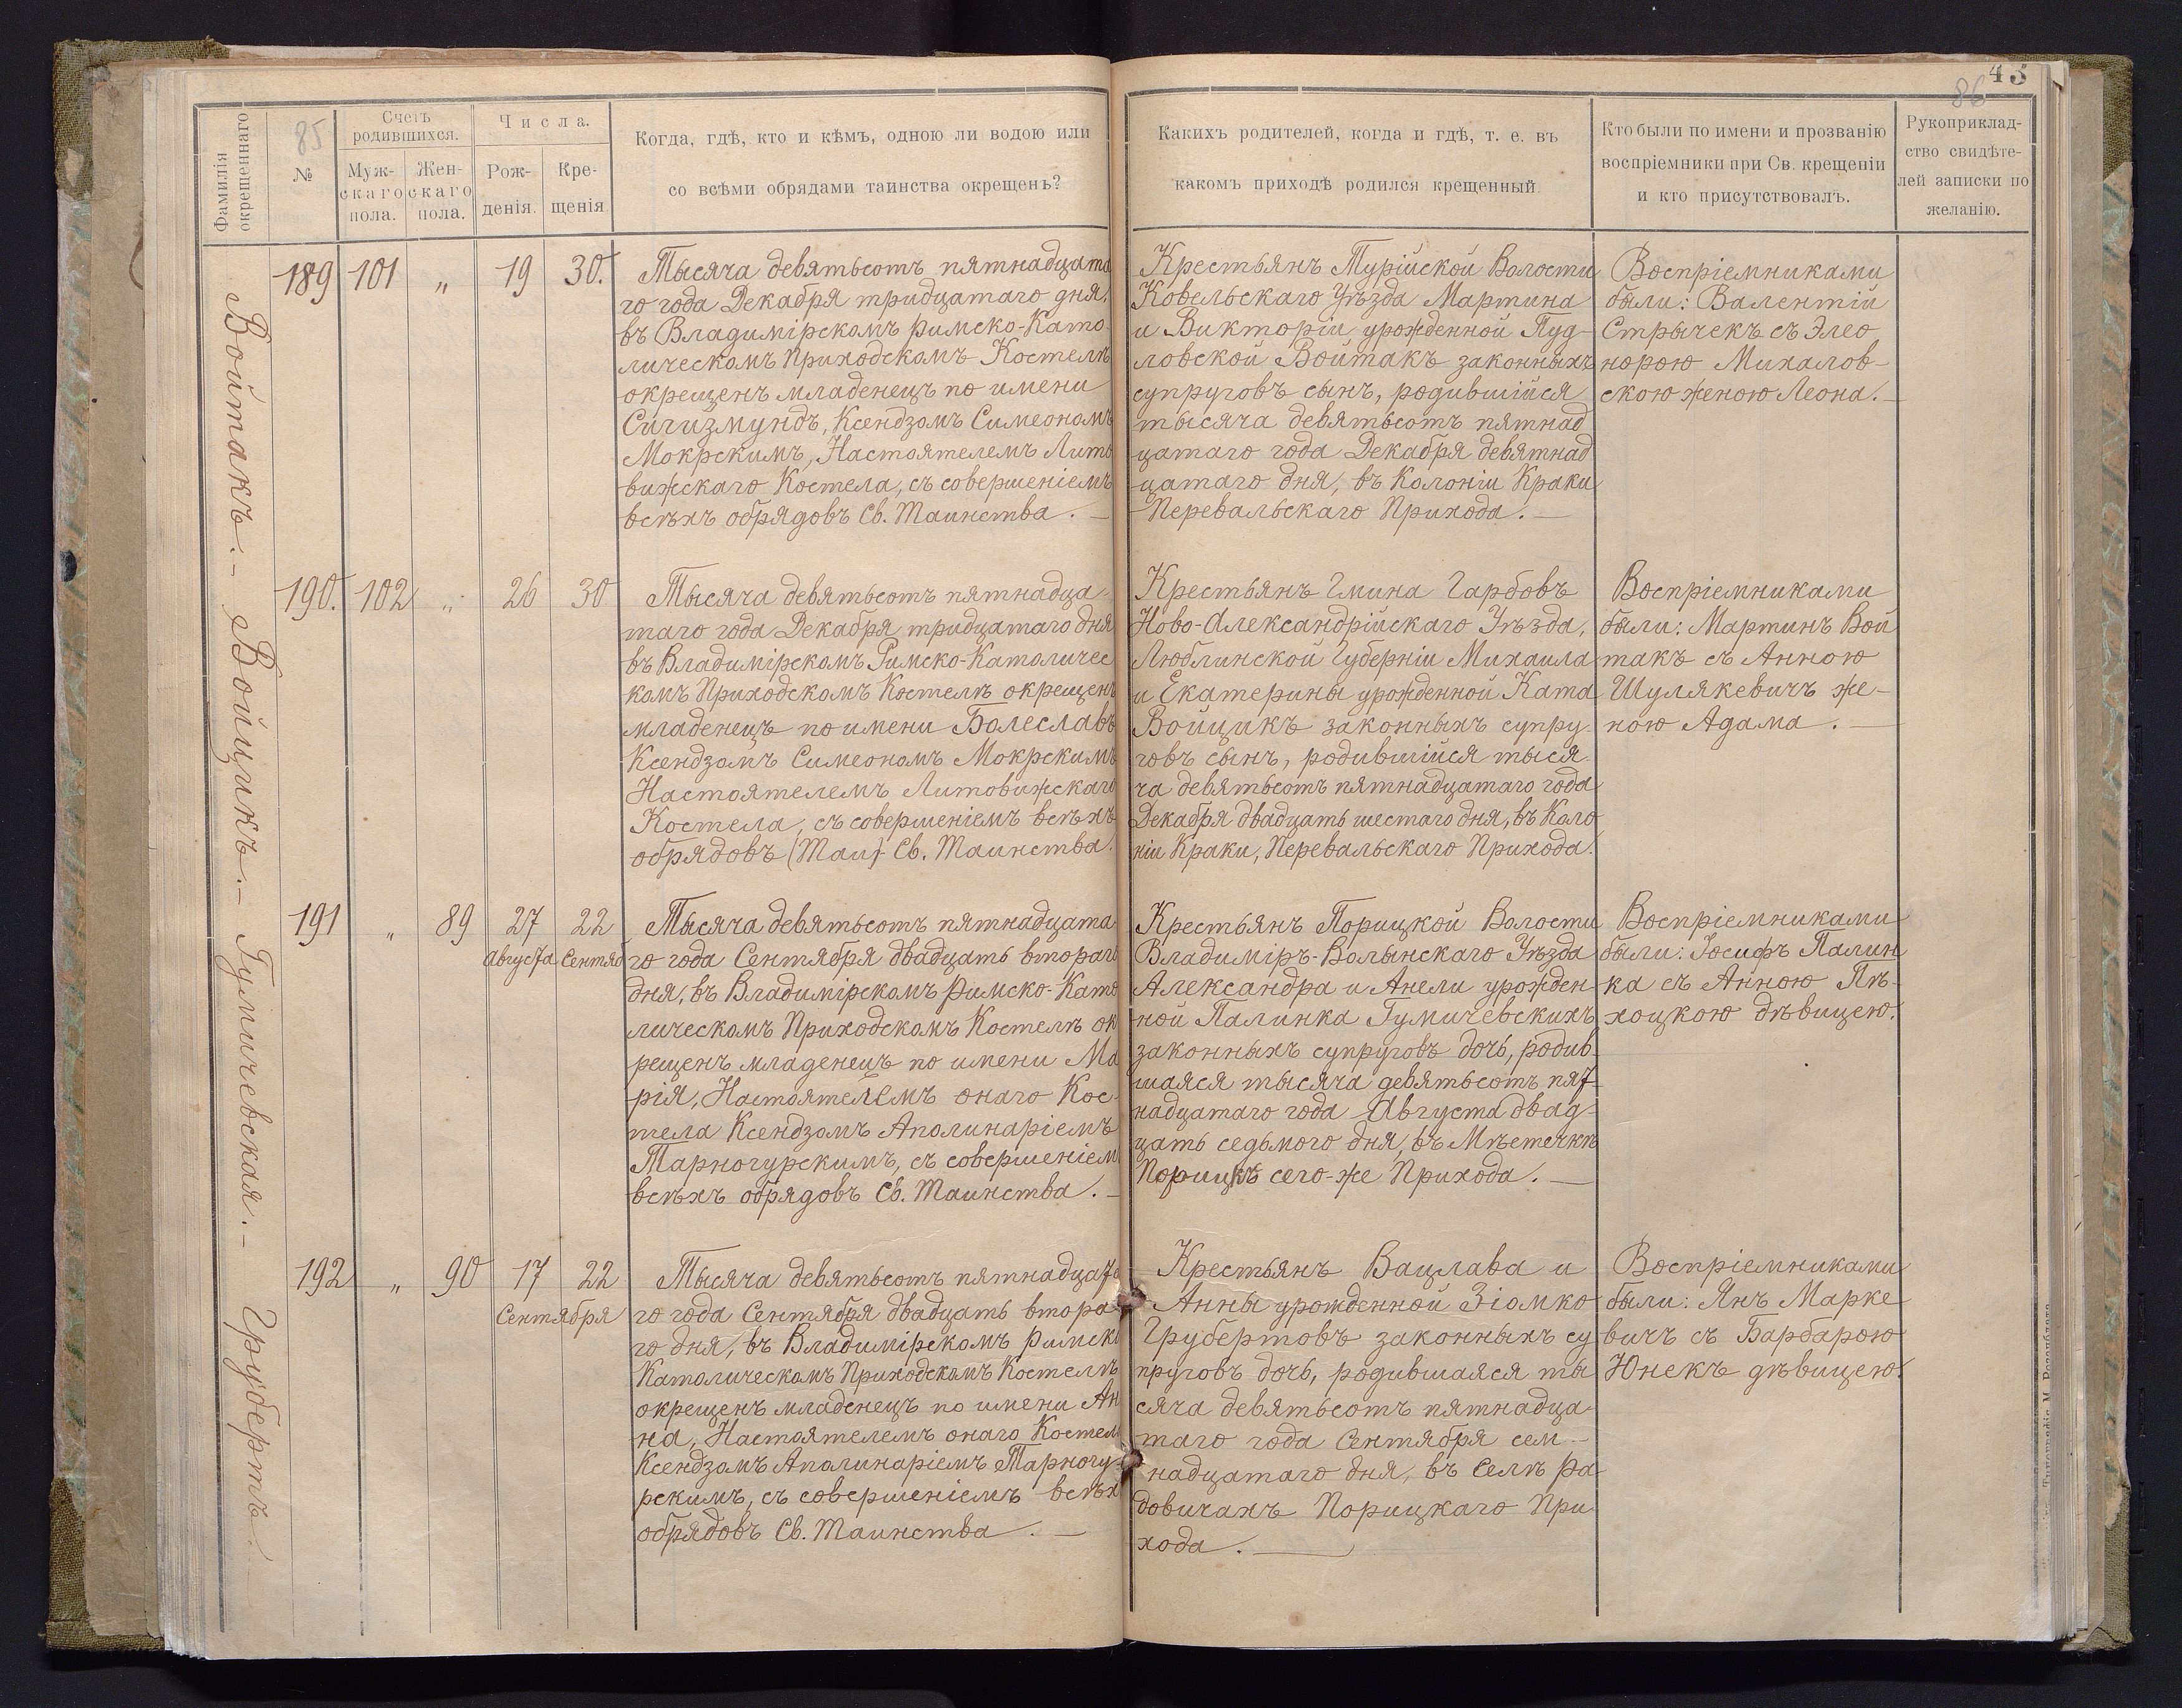 43
85
86
Фамилія окрещеннаго
№
Счетъ родившихся.
Муж-скаго пола.
Жен-скаго пола.
Числа.
Рож-денія.
Кре-щенія.
Когда, гдѣ, кто и кѣмъ, одною ли водою или
со всѣми обрядами таинства окрещенъ?
Какихъ родителей, когда и гдѣ, т. е. въ
какомъ приходѣ родился крещенный.
Кто были по имени и прозванію
воспріемники при Св. крещеніи
и кто присутствовалъ.
Рукоприклад-
ство свидѣте-
лей записки по
желанію.
Войтакъ.–
189 101 „ 19 30.
Тысяча девятьсотъ пятнадцата
го года Декабря тридцатаго дня,
въ Владимірскомъ Римско-Като-
лическомъ Приходскомъ Костелѣ
окрещенъ младенецъ по имени
Сигизмундъ, Ксендзомъ Симеономъ
Мокрскимъ, Настоятелемъ Лито
вижскаго Костела, съ совершеніемъ
всѣхъ обрядовъ Св. Таинства. —
Крестьянъ Турійской Волости
Ковельскаго Уѣзда Мартина
и Викторіи урожденной Пуд-
ловской Войтакъ законныхъ
супруговъ сынъ, родившійся
тысяча девятьсотъ пятнад
цатаго года Декабря девятнад
цатаго дня, въ Колоніи Краки
Перевальскаго Прихода. —
Воспріемниками
были: Валентій
Стрычекъ съ Элео
норою Михалов-
скою женою Леона. —
Войцикъ.–
190. 102 „ 26 30
Тысяча девятьсотъ пятнадца-
таго года Декабря тридцатаго дня
въ Владимірскомъ Римско-Католичес
комъ Приходскомъ Костелѣ окрещенъ
младенецъ по имени Болеславъ
Ксендзомъ Симеономъ Мокрскимъ
Настоятелемъ Литовижскаго
Костела, съ совершеніемъ всѣхъ
обрядовъ (Таи) Св. Таинства.
Крестьянъ Гмина Гарбовъ
Ново-Александрійскаго Уѣзда,
Люблинской Губерніи Михаила
и Екатерины урожденной Ката
Войцикъ законныхъ супру-
говъ сынъ, родившійся тыся-
ча девятьсотъ пятнадцатаго года
Декабря двадцать шестаго дня, въ Коло
ніи Краки, Перевальскаго Прихода.
Воспріемниками
были: Мартинъ Вой
такъ съ Анною
Шулякевичъ же-
ною Адама. —
Гумичевская.–
191 „ 89 27 22
Августа Сентяб
Тысяча девятьсотъ пятнадцата-
го года Сентября двадцать втораго
дня, въ Владимірскомъ Римско-Като
лическомъ Приходскомъ Костелѣ ок
рещенъ младенецъ по имени Ма
рія, Настоятелемъ онаго Кос-
тела Ксендзомъ Аполинаріемъ
Тарногурскимъ, съ совершеніем
всѣхъ обрядовъ Св. Таинства. –
Крестьянъ Порицкой Волости
Владиміръ-Волынскаго Уѣзда
Александра и Анели урожден-
ной Палинка Гумичевскихъ
законныхъ супруговъ дочь, родив-
шаяся тысяча девятьсотъ пят-
надцатаго года Августа двад-
цать седьмого дня, въ Мѣстечкѣ
Порицкѣ сего-же Прихода. —
Воспріемниками
были: Іосифъ Палин
ка съ Анною Пѣ-
хоцкою дѣвицею.
Грубертъ.–
192 „ 90 17 22
Сентября
Тысяча девятьсотъ пятнадцата
го года Сентября двадцать втора-
го дня, въ Владимірскомъ Римско
Католическомъ Приходскомъ Костелѣ
окрещенъ младенецъ по имени Ан
на, Настоятелемъ онаго Костела
Ксендзомъ Аполинаріемъ Тарногу-
рскимъ, съ совершеніемъ всѣхъ
обрядовъ Св. Таинства. —
Крестьянъ Вацлава и
Анны урожденной Зіомко
Грубертовъ законныхъ су
пруговъ дочь, родившаяся ты
сяча девятьсотъ пятнадца-
таго года Сентября сем-
надцатаго дня, въ Селѣ Ра
довичахъ Порицкаго При-
хода. —
Воспріемниками
были: Янъ Марке
вичъ съ Барбарою
Юнекъ дѣвицею.